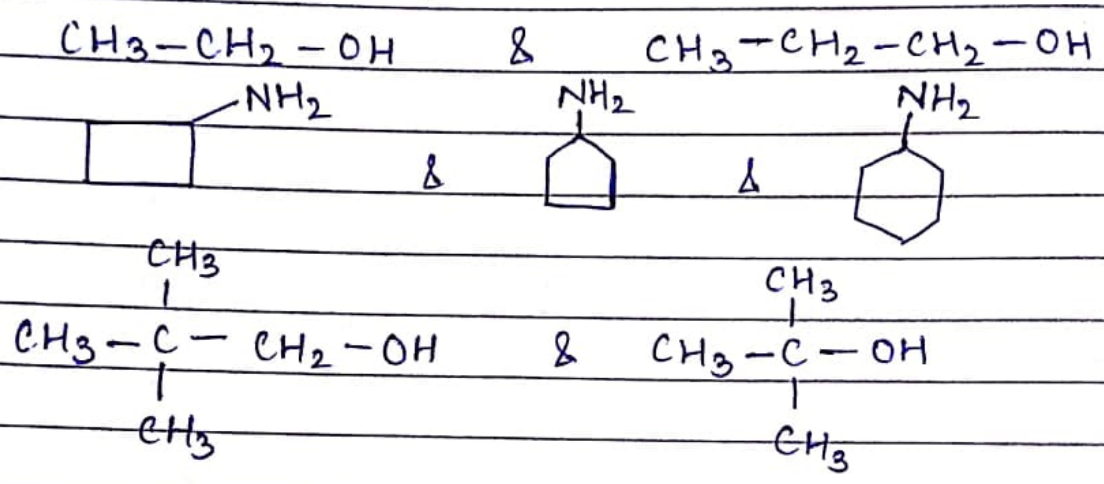 CH3-CH2-OH & CH3-CH2-CH2-OH
NH2 NH2 NH2
& &
CH3 CH3
CH3-C-CH2-OH & CH3-C-OH
CH3 CH3